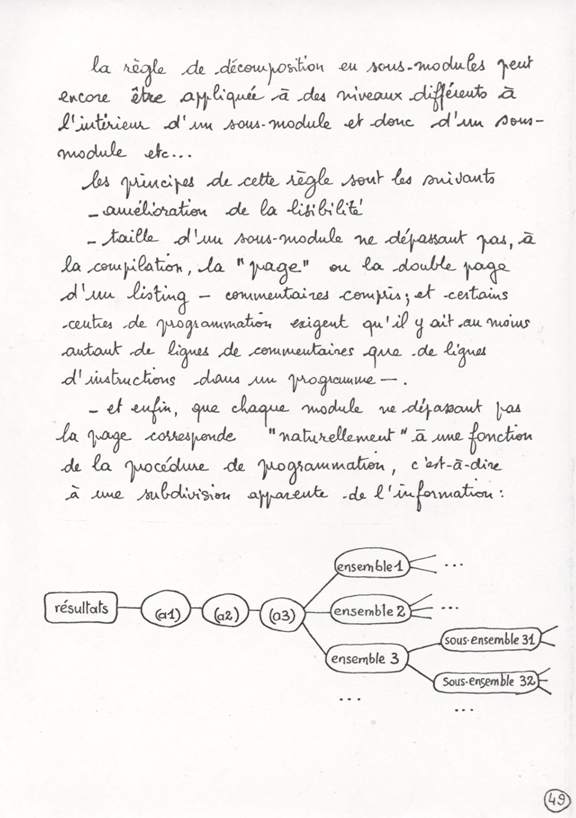 la règle de décomposition en sous-modules peut
encore être appliquée à des niveaux différents à
l'intérieur d'un sous-module et donc d'un sous-
module etc...
les principes de cette règle sont les suivants
- amélioration de la lisibilité
- taille d'un sous-module ne dépassant pas, à
la compilation, la "page" ou la double page
d'un listing - commentaires compris; et certains
centres de programmation exigent qu'il y ait au moins
autant de lignes de commentaires que de lignes
d'instructions dans un programme -.
- et enfin, que chaque module ne dépassant pas
la page corresponde "naturellement" à une fonction
de la procédure de programmation, c'est-à-dire
à une subdivision apparente de l'information:
résultats
(a1)
(a2)
(a3)
ensemble 1
...
ensemble 2
...
ensemble 3
sous-ensemble 31
sous-ensemble 32
...
...
49